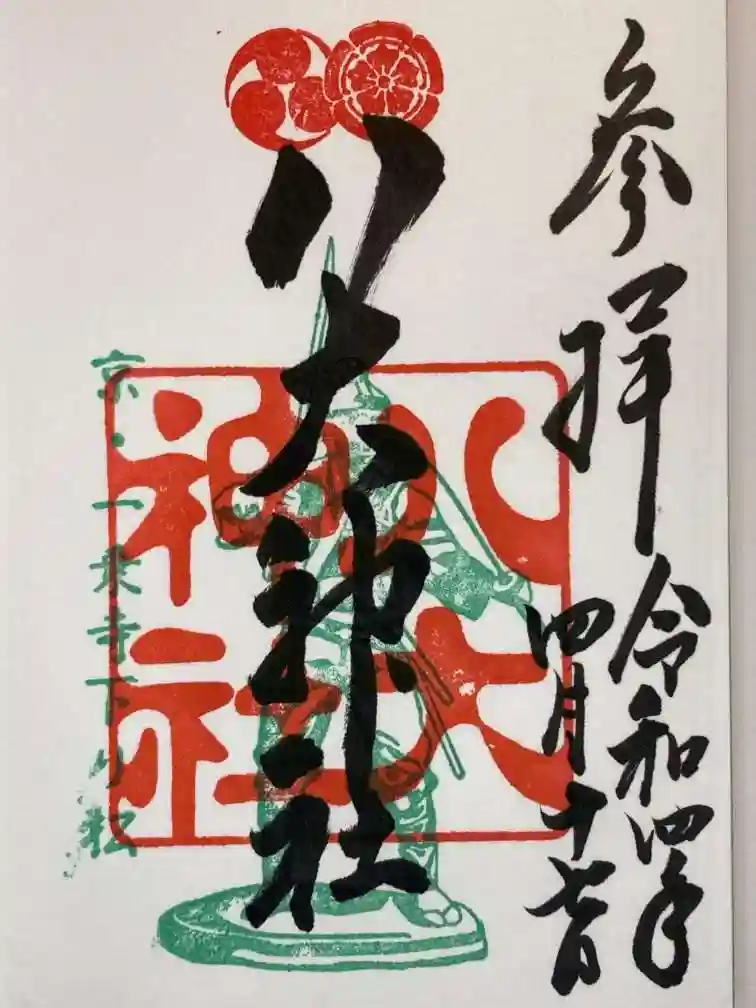 参拝 令和四年
四月十七日
八大神社
八大
神社
京・一乗寺下り松